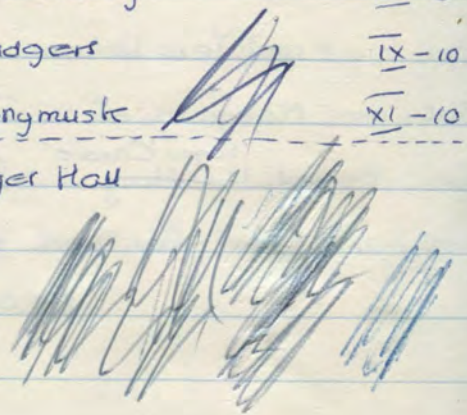 udgers IX - 10
nymusk XI - 10
ger Hall